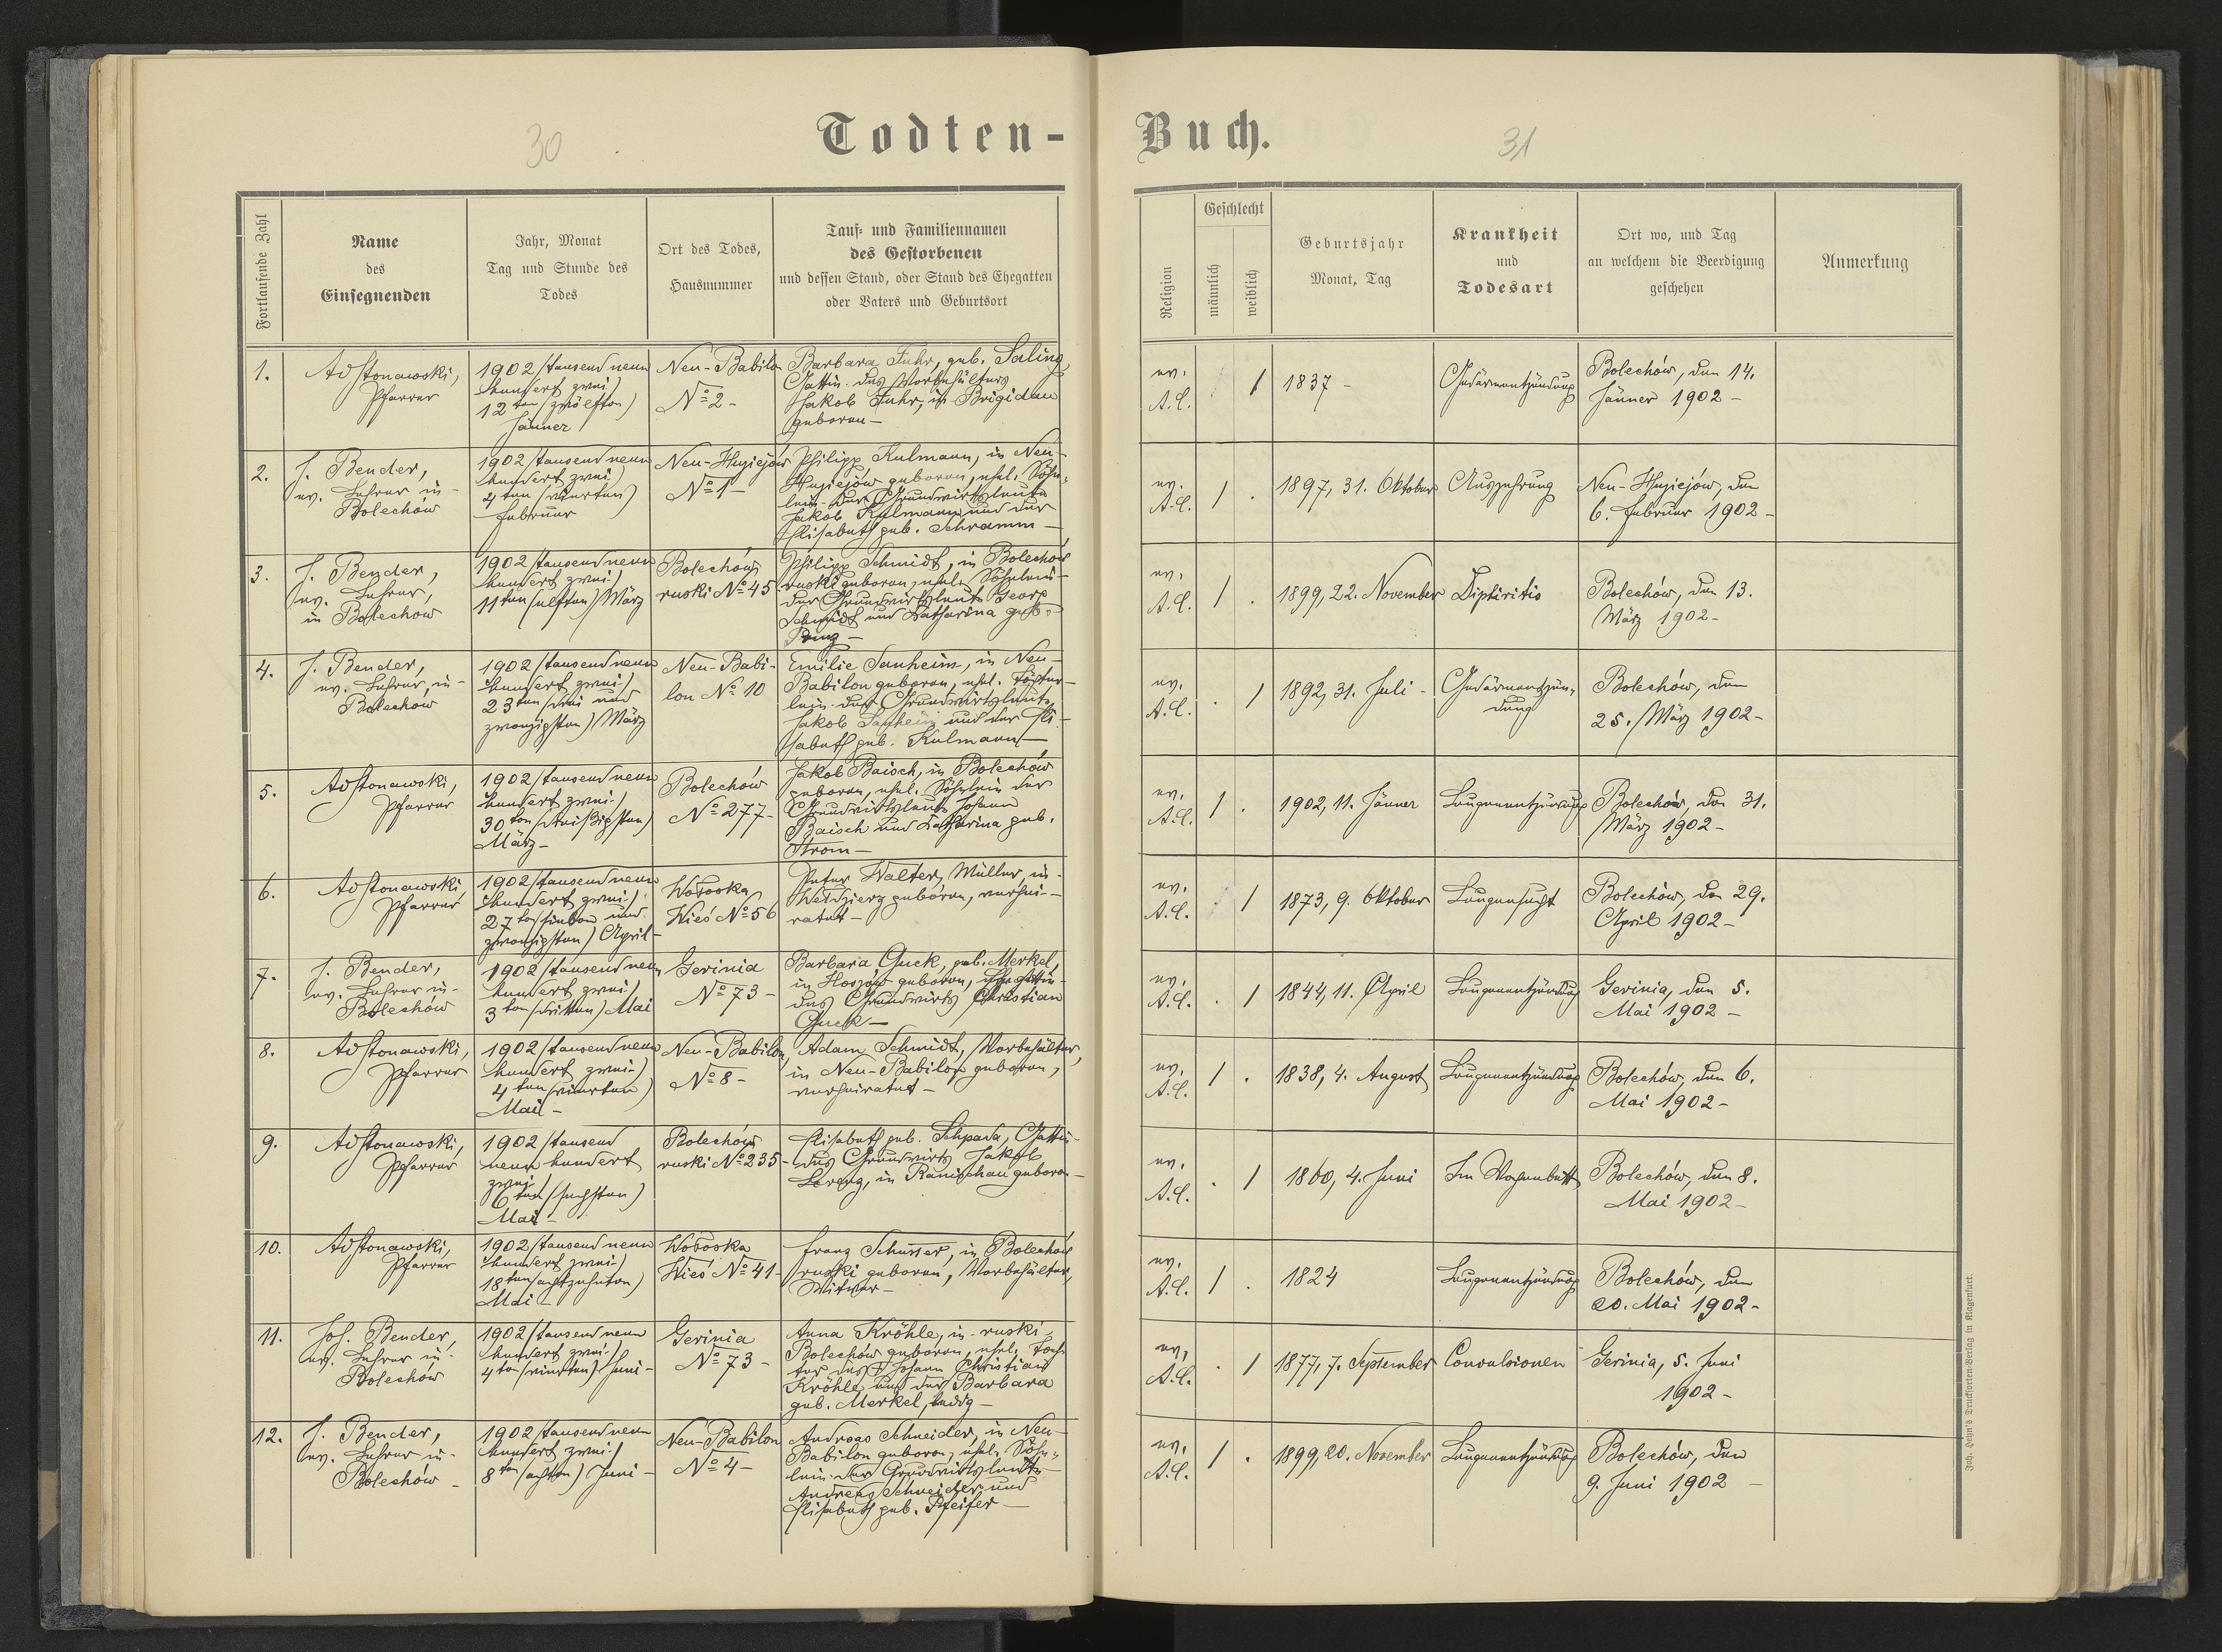 30
Todten-
Fortlaufende Zahl
Name
des
Einsegnenden
Jahr, Monat
Tag und Stunde des
Todes
Ort des Todes,
Hausnummer
Tauf- und Familiennamen
des Gestorbenen
und dessen Stand, oder Stand des Ehegatten
oder Vaters und Geburtsort
1.
Adstonawski,
Pfarrer
1902 /tausend neun
hundert zwei/
12ten (zwölften)
Jänner
Neu-Babilon
No 2-
Barbara Fuhr, geb. Saling,
Gattin des Vorbehälters
Jakob Fuhr, in Brigidau
geboren-
2.
J. Bender,
ev. Lehrer in
Bolechów
1902 /tausend neun
hundert zwei/
4ten (vierten)
Februar
Neu-Huziejów
No 1-
Philipp Kulmann, in Neu-
Huziejów geboren, ehel. Söhn-
lein der Grundwirtsleute
Jakob Kulmann und der
Elisabeth geb. Schramm-
3.
J. Bender,
ev. Lehrer,
in Bolechow
1902 /tausend neun
hundert zwei/
11ten (elften) März
Bolechów
ruski No 45
Philipp Schmidt, in Bolechów
ruski geboren, ehel. Söhnlein
der Grundwirtsleute Georg
Schmidt und Katharina geb.
4.
J. Bender,
ev. Lehrer, in
Bolechow
1902 /tausend neun
hundert zwei/
23ten (drei und
zwanzigsten) März
Neu-Babi-
lon No 10
Emilie Sauheim, in Neu-
Babilon geboren, ehel. Töchter-
lein der Grundwirtsleute
Jakob Sauheim und der Eli-
sabeth geb. Kulmann-
5.
Adstonawski,
Pfarrer
1902 /tausend neun
hundert zwei/
30ten (dreißigsten)
März-
Bolechów
No 277-
Jakob Baisch, in Bolechów
geboren, ehel. Söhnlein der
Grundwirtsleute Johann
Baisch und Katharina geb.
Strom-
6.
Adstonawski,
Pfarrer
1902 /tausend neun
hundert zwei/
27ten (sieben und
zwanzigsten) April-
Wołoska
Wieś No 56
Peter Walter, Müller, in
Weldzierz geboren, verhei-
ratet-
7.
J. Bender,
ev. Lehrer in
Bolechów
1902 /tausend neun
hundert zwei/
3ten (dritten) Mai
Gerinia
No 73-
Barbara Guck, geb. Merkel,
in Hoszów geboren, Ehegattin
des Grundwirts Christian
Guck-
8.
Adstonawski,
Pfarrer
1902 /tausend neun
hundert zwei/
4ten (vierten)
Mai-
Neu-Babilon,
No 8-
Adam Schmidt, Vorbehälter,
in Neu-Babilon geboren,
verheiratet-
9.
Adstonawski,
Pfarrer
1902 /tausend
neun hundert
zwei/
6ten (sechsten)
Mai-
Bolechów
ruski No 235-
Elisabeth geb. Schpada, Gattin
des Grundwirts Jakob
Lorenz, in Ranischau geboren-
10.
Adstonawski,
Pfarrer
1902 /tausend neun
hundert zwei/
18ten (achtzehnten)
Mai-
Wołoska
Wieś No 41-
Franz Schusser, in Bolechów
ruski geboren, Vorbehälter,
Witwer-
11.
Joh. Bender,
ev. Lehrer in
Bolechów
1902 /tausend neun
hundert zwei/
4ten (vierten) Juni-
Gerinia
No 73-
Anna Kröhle, in ruski
Bolechów geboren, ehel. Toch-
ter des † Johann Christian
Kröhle und der Barbara
geb. Merkel, ledig-
12.
J. Bender,
ev. Lehrer in
Bolechów-
1902 /tausend neun
hundert zwei/
8ten (achten) Juni-
Neu-Babilon
No 4-
Andreas Schneider, in Neu-
Babilon geboren, ehel. Söhn-
lein der Grundwirtsleute
Andreas Schneider und
Elisabeth geb. Pfeifer-
Buch.
31
Religion
Geschlecht
männlich
weiblich
Geburtsjahr
Monat, Tag
Krankheit
und
Todesart
Ort wo, und Tag
an welchem die Beerdigung
geschehen
Anmerkung
ev.
A.C.
1
1837-
Gedärmentzündung
Bolechów, den 14.
Jänner 1902-
ev.
A.C.
1
1897, 31. Oktober
Auszehrung
Neu-Huziejów, den
6. Februar 1902-
ev.
A.C.
1
1899, 22. November
Diptiritis
Bolechów, den 13.
März 1902-
ev.
A.C.
1
1892, 31. Juli-
Gedärmentzün-
dung
Bolechów, den
25. März 1902-
ev.
A.C.
1
1902, 11. Jänner
Lungenentzündung
Bolechów, den 31.
März 1902-
ev.
A.C.
1
1873, 9. Oktober
Lungensucht
Bolechów, den 29.
April 1902-
ev.
A.C.
1
1844, 11. April
Lungenentzündung
Gerinia, den 5.
Mai 1902-
ev.
A.C.
1
1838, 4. August
Lungenentzündung
Bolechów, den 6.
Mai 1902-
ev.
A.C.
1
1860, 4. Juni
Im Wochenbett
Bolechów, den 8.
Mai 1902-
ev.
A.C.
1
1824
Lungenentzündung
Bolechów, den
20. Mai 1902-
ev.
A.C.
1
1877, 7. September
Convulsionen
Gerinia, 5. Juni
1902-
ev.
A.C.
1
1899, 20. November
Lungenentzündung
Bolechów, den
9. Juni 1902-
Joh. Heyn's Drucksorten-Verlag in Klagenfurt.